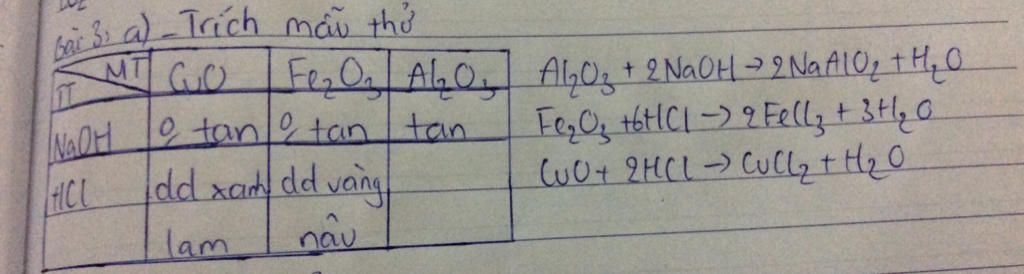 Bài 3: a) - Trích mẫu thử
MT CuO Fe₂O₃ Al₂O₃
TT
NaOH 0 tan 0 tan tan
HCl dd xanh lam dd vàng nâu
Al₂O₃ + 2NaOH → 2NaAlO₂ + H₂O
Fe₂O₃ + 6HCl → 2FeCl₃ + 3H₂O
CuO + 2HCl → CuCl₂ + H₂O